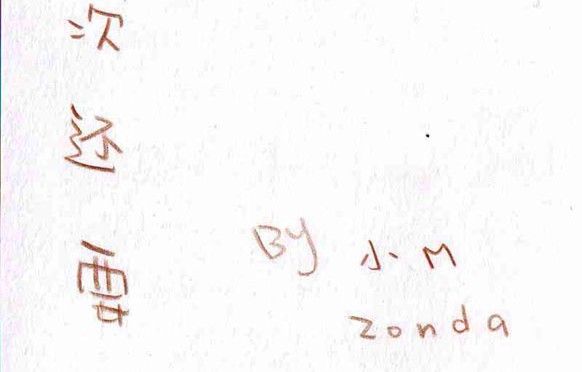 次
还
要
BY 小M
zonda